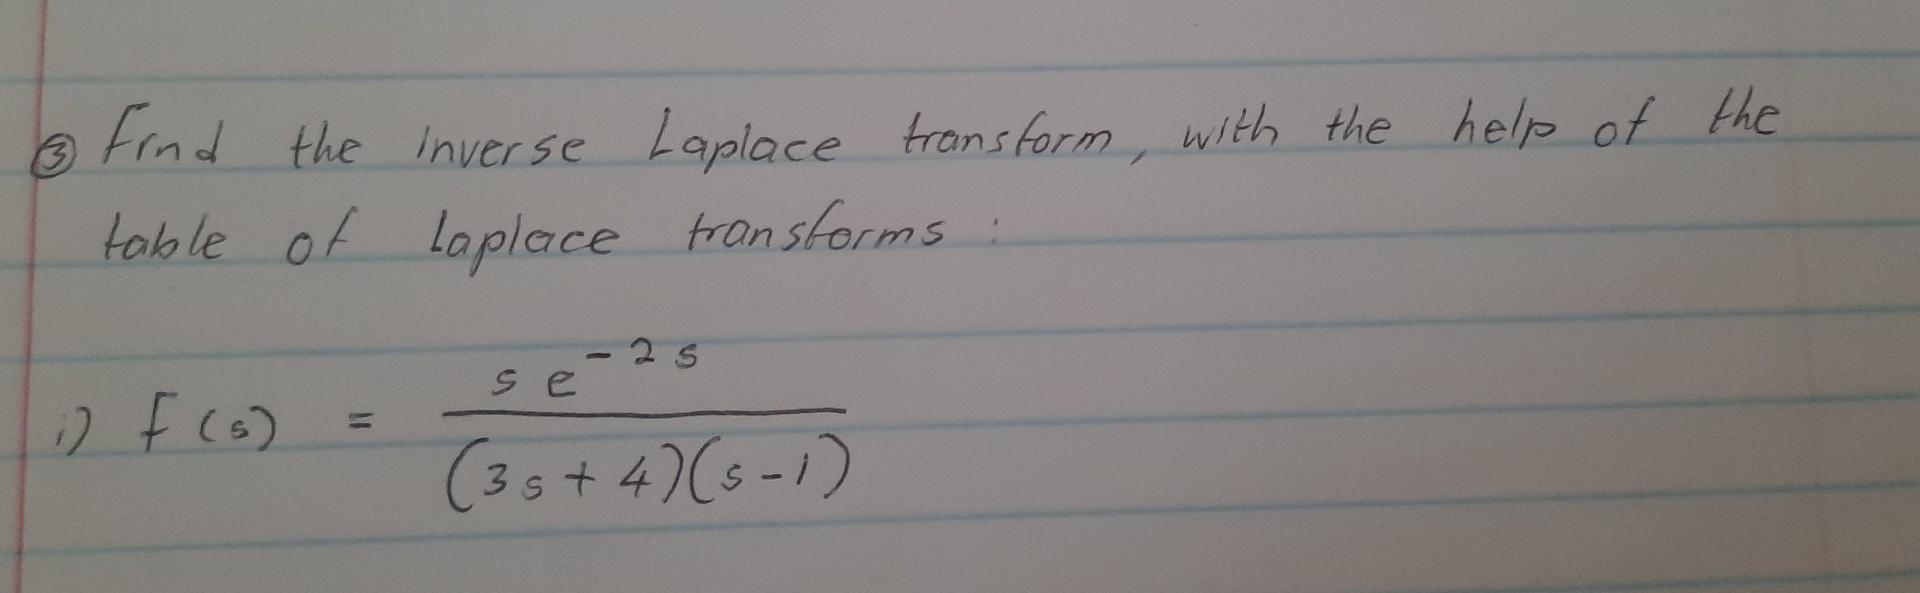 ③ Find the inverse Laplace transform, with the help of the
table of Laplace transforms :
i) F(s) = se^{-2s} / (3s+4)(s-1)